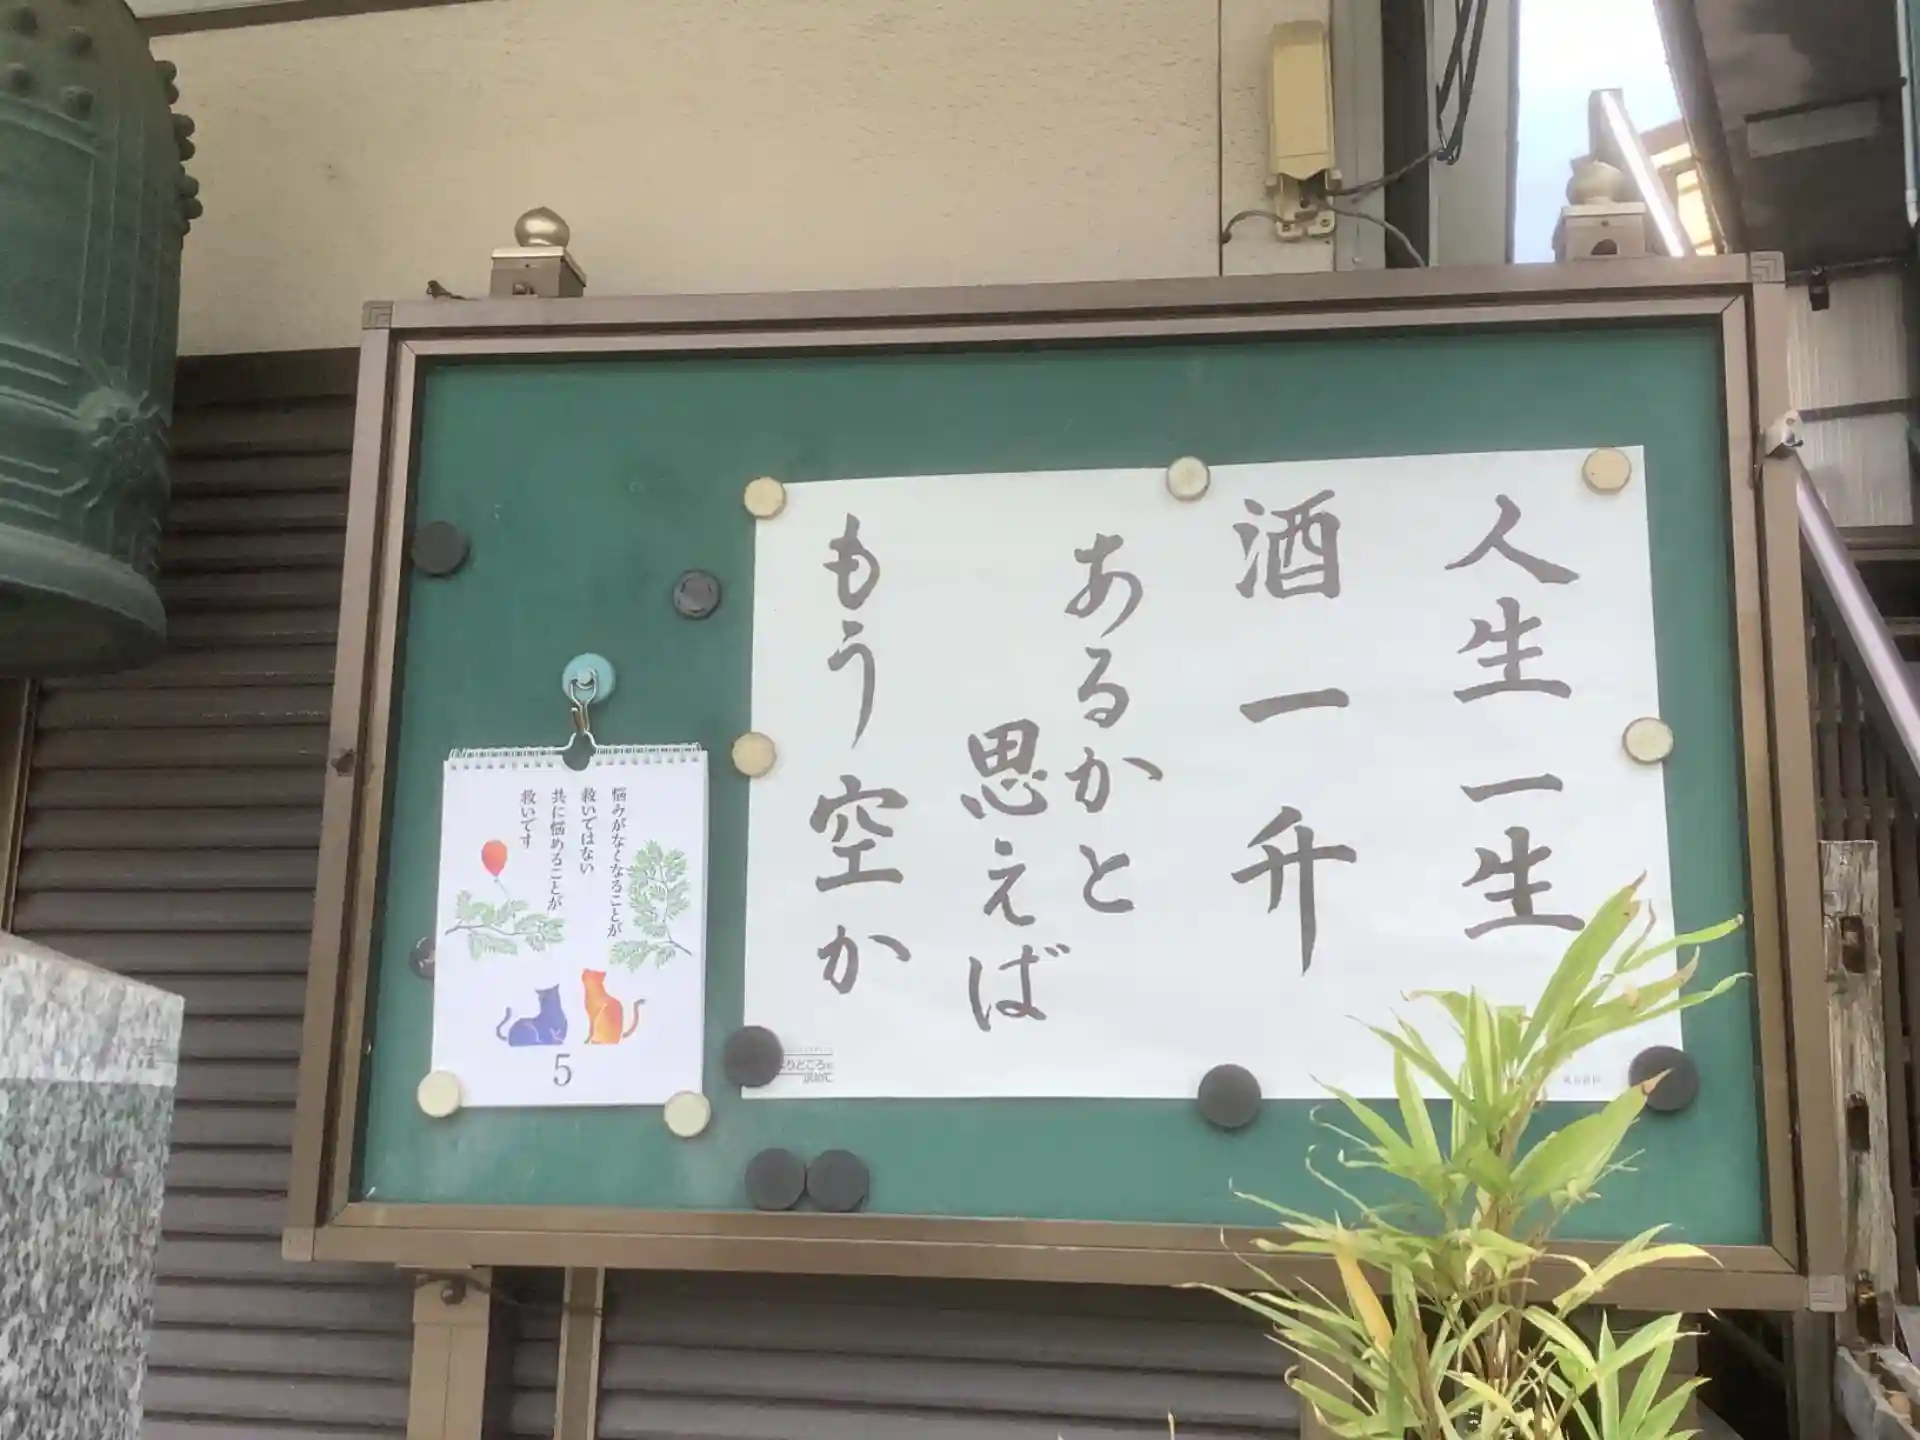 人生一生
酒一升
あるかと
思えば
もう空か
悩みがなくなることが
救いではない
共に悩めることが
救いです
5
よりどころ